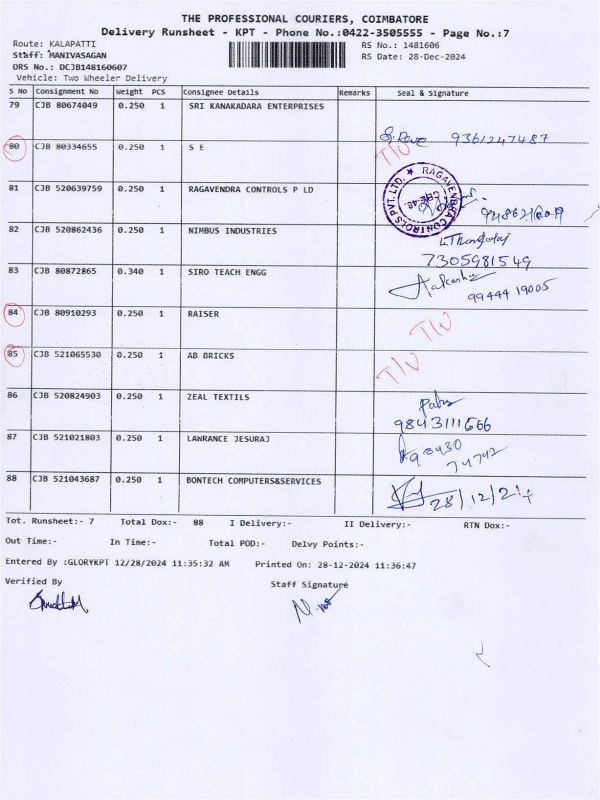 THE PROFESSIONAL COURIERS, COIMBATORE
Delivery Runsheet - KPT - Phone No.:0422-3505555 - Page No.:7
Route: KALAPATTI
RS No.: 1481606
Staff: MANIVASAGAN
RS Date: 28-Dec-2024
DRS No.: DCJB148160607
Vehicle: Two Wheeler Delivery
S No Consignment No Weight PCS Consignee Details Remarks Seal & Signature
79 CJB 80674049 0.250 1 SRI KANAKADARA ENTERPRISES
9361247487
80 CJB 80334655 0.250 1 S E T/V
81 CJB 520639759 0.250 1 RAGAVENDRA CONTROLS P LD
RAGAVENDRA CONTROLS PVT. LTD. ★
82 CJB 520862436 0.250 1 NIMBUS INDUSTRIES
7305981549
83 CJB 80872865 0.340 1 SIRO TEACH ENGG
99444 19005
84 CJB 80910293 0.250 1 RAISER T/V
85 CJB 521065530 0.250 1 AB BRICKS T/V
86 CJB 520824903 0.250 1 ZEAL TEXTILS
9843111666
87 CJB 521021803 0.250 1 LAWRANCE JESURAJ
74742
88 CJB 521043687 0.250 1 BONTECH COMPUTERS&SERVICES
28/12/24
Tot. Runsheet:- 7 Total Dox:- 88 I Delivery:- II Delivery:- RTN Dox:-
Out Time:- In Time:- Total POD:- Delvy Points:-
Entered By :GLORYKPT 12/28/2024 11:35:32 AM Printed On: 28-12-2024 11:36:47
Verified By Staff Signature